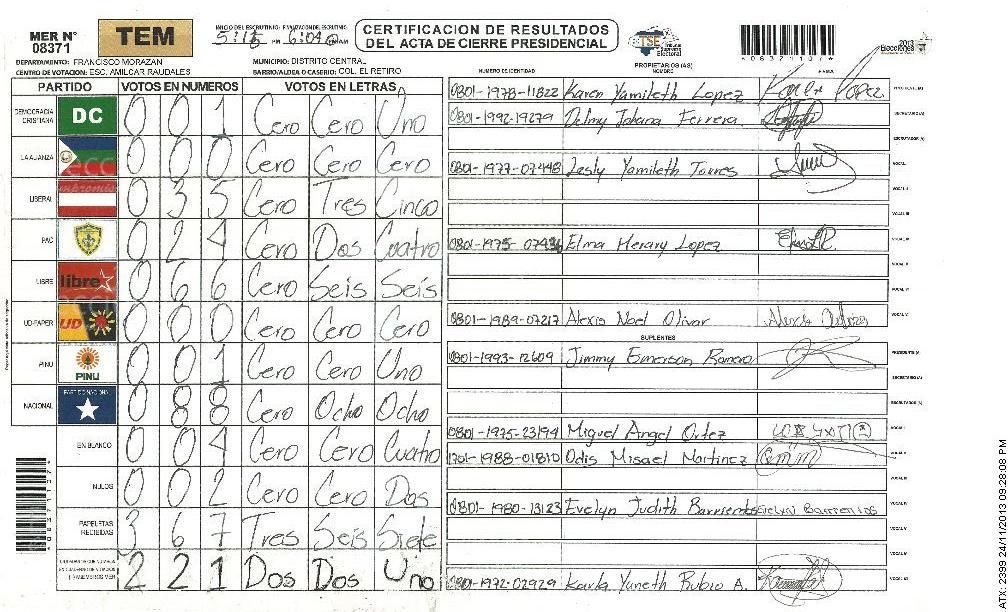 MER N° 08371
TEM
INICIO DEL ESCRUTINIO: FINALIZACION DEL ESCRUTINIO:
5:15 PM 6:04
CERTIFICACION DE RESULTADOS
DEL ACTA DE CIERRE PRESIDENCIAL
TSE Tribunal Supremo Electoral
2013 Elecciones
*08371107*
DEPARTAMENTO: FRANCISCO MORAZAN
MUNICIPIO: DISTRITO CENTRAL
CENTRO DE VOTACION: ESC. AMILCAR RAUDALES
BARRIO/ALDEA O CASERIO: COL. EL RETIRO
PARTIDO VOTOS EN NUMEROS VOTOS EN LETRAS
DEMOCRACIA CRISTIANA DC 0 0 1 Cero Cero Uno
LA ALIANZA 0 0 0 Cero Cero Cero
LIBERAL 0 3 5 Cero Tres Cinco
PAC 0 2 4 Cero Dos Cuatro
LIBRE libre 0 6 6 Cero Seis Seis
UD-FAPER UD 0 0 0 Cero Cero Cero
PINU PINU 0 0 1 Cero Cero Uno
NACIONAL PARTIDO NACIONAL 0 8 8 Cero Ocho Ocho
EN BLANCO 0 0 4 Cero Cero Cuatro
NULOS 0 0 2 Cero Cero Dos
PAPELETAS RECIBIDAS 3 6 7 Tres Seis Siete
2 2 1 Dos Dos Uno
PROPIETARIOS (AS)
NUMERO DE IDENTIDAD NOMBRE FIRMA
0801-1978-11822 Karen Yamileth Lopez Karen Lopez
0801-1992-19279 Delmy Johana Ferrera SECRETARIO (A)
ESCRUTADOR (A)
0801-1977-07448 Lesly Yamileth Torres VOCAL I
VOCAL II
VOCAL III
0801-1975-07436 Elma Merary Lopez
VOCAL V
0801-1989-07217 Alexis Noel Olivar
SUPLENTES
0801-1993-12609 Jimmy Emerson Romero PRESIDENTE (A)
SECRETARIO (A)
ESCRUTADOR (A)
0801-1975-23194 Miguel Angel Ortez VOCAL I
1701-1988-01810 Odis Misael Martinez
VOCAL III
0801-1980-13123 Evelyn Judith Barrientos Evelyn Barrientos VOCAL IV
VOCAL V
0801-1972-02929 Karla Yaneth Rubio A.
ATX 2399 24/11/2013 09:28:08 PM